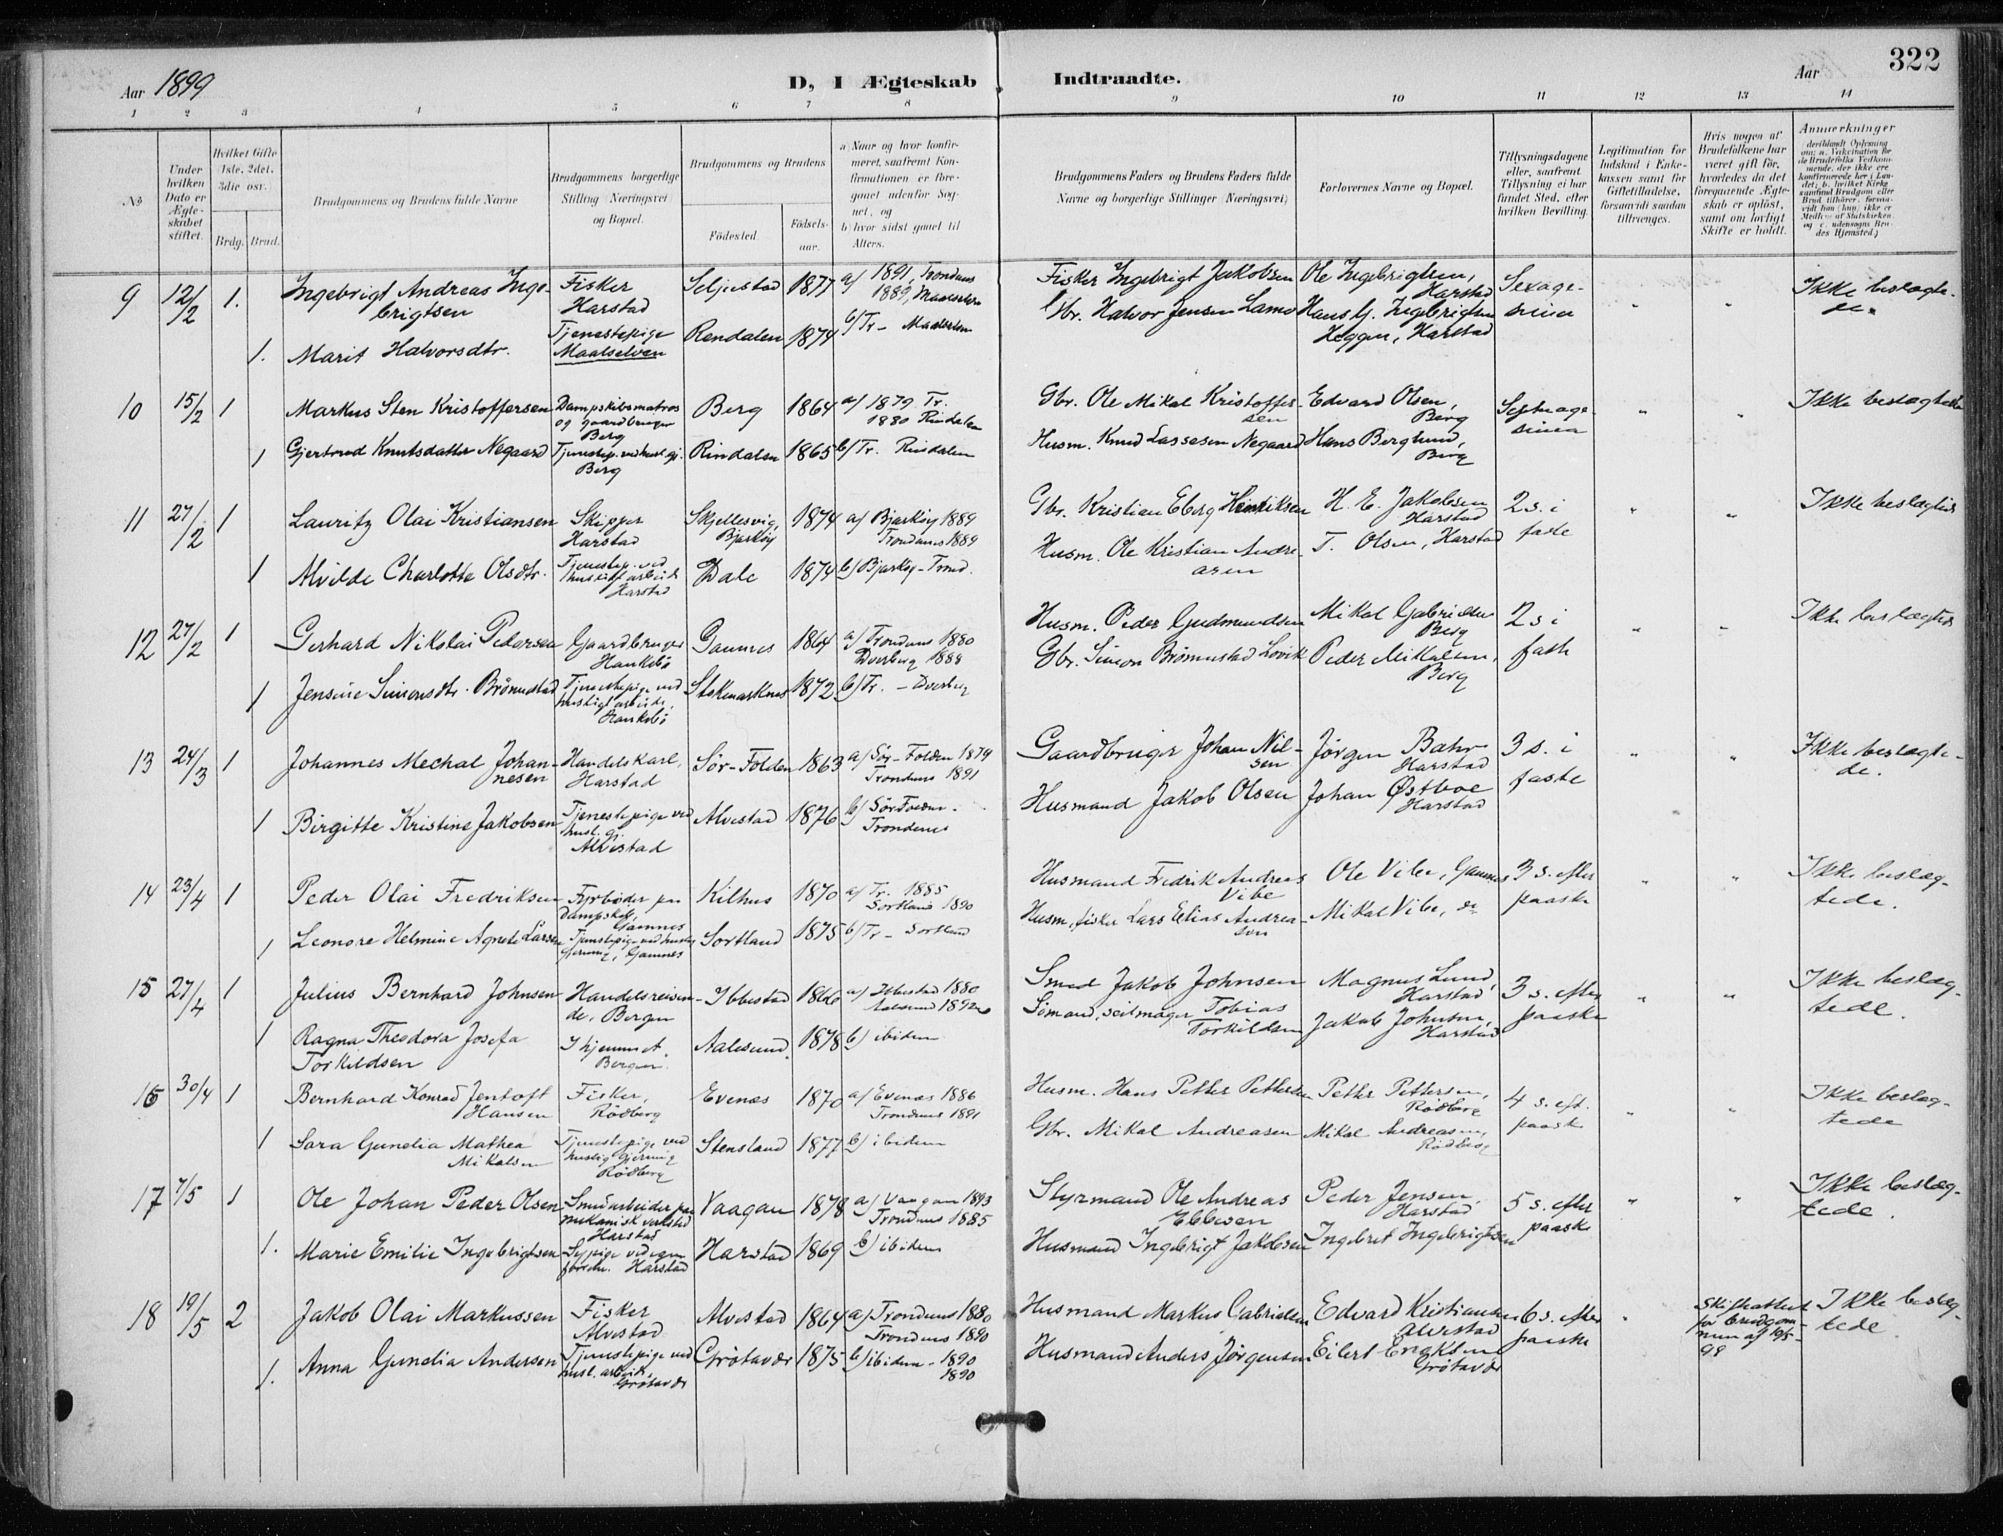 Aar 1899 D, I Ægteskab Indtraadte. Aar 322
1 2 3 4 5 6 7 8 9 10 11 12 13 14
No
Under hvilken Dato er Ægteskabet stiftet.
Hvilket Gifte 1ste, 2det, 3die osv.
Brdg. Brud.
Brudgommens og Brudens fulde Navne
Brudgommens borgerlige Stilling Næringsvei og Bopæl.
Brudgommens og Brudens
Födested. Födselsaar.
a) Naar og hvor konfirmeret, saafremt Konfirmationen er foregaaet udenfor Sognet, og
b) hvor sidst gaaet til Alters.
Brudgommens Faders og Brudens Faders fulde Navne og borgerlige Stillinger Næringsvei)
Forlovernes Navne og Bopæl.
Tillysningsdagene eller, saafremt Tillysning ei har fundet Sted, efter hvilken Bevilling.
Legitimation for Indskud i Enkekassen samt for Giftetilladelse, forsaavidt saadan tiltrænges.
Hvis nogen af Brudefolkene har været gift för, hvorledes da det foregaaende Ægteskab er oplöst, samt om lovligt Skifte er holdt.
Anmerkninger
9 12/2 1. Ingebrigt Andreas Ingebrigtsen Fisker Harstad Seljestad 1877 a) 1891, Trondenes 1889, Maalselven Fisker Ingebrigt Jakobsen Ole Ingebrigtsen, Harstad Sexagesima " " Ikke beslægtede.
1. Marit Halvorsdtr. Tjenestepige Maalselven Rendalen 1874 b) Tr. – Maalselven Gbr. Halvor Jensen Lamo Hans G. Ingebrigtsen Heggen, Harstad
10 15/2 1 Markus Sten Kristoffersen Dampskibsmatros og gaardbruger Berg Berg 1864 a) 1879 Tr. 1880 Rindalen Gbr. Ole Mikal Kristoffersen Edvard Olsen, Berg Septuagesima " " Ikke beslægtede
1 Gjertrud Knutsdatter Negaard Tjenestep. ved husl. gj. Berg Rindalen 1865 b) Tr. Rindalen Husm. Knud Lassesen Negaard Hans Berglund, Berg
11 27/2 1 Lauritz Olai Kristiansen Skipper Harstad Skjellesvig, Bjarköy 1874 a) Bjarköy 1889 Trondenes 1889 Gbr. Kristian Eberg Henriksen H. E. Jakobsen Harstad 2 s. i faste " " Ikke beslægtede
1 Alvilde Charlotte Olsdtr. Tjenestep. ved husligt arbeide Harstad Dale 1874 b) Bjarköy – Trond. Husm. Ole Kristian Andreasen T. Olsen, Harstad
12 27/2 1 Gerhard Nikolai Pedersen Gaardbruger Haukebö Gamnes 1864 a) Trondenes 1880 Dverberg 1888 Husm. Peder Gudmundsen Mikal Gabrielsen Berg 2 s i faste " " Ikke beslægtede
1 Jensine Simonsdtr. Brömnstad Tjenestepige ved husligt arbeide, Haukebö Stokmarknes 1872 b) Tr. – Dverberg Gbr. Simon Brömnstad Lovik Peder Mikalsen, Berg
13 24/3 1 Johannes Mechal Johannesen Handelskarl, Harstad Sör-Folden 1863 a) Sör-Folden 1879 Trondenes 1891 Gaardbruger Johan Nilsen Jörgen Bahr Harstad 3 s. i faste " " Ikke beslægtede.
1 Birgitte Kristine Jakobsen Tjenestepige ved husl. gj. Alvestad Alvestad 1876 b) Sör Folden. Trondenes Husmand Jakob Olsen Johan Østboe Harstad
14 23/4 1 Peder Olai Fredriksen Fyrböder paa Dampskib, Gamnes Kilhus 1870 a) Tr. 1885 Sortland 1890 Husmand Fredrik Andreas Vibe Ole Vibe, Gamnes 3 s. efter paaske " " Ikke beslægtede.
1 Leonore Helmine Agnete Larsen Tjenestepige ved huslig gjerning, Gamnes Sortland 1875 b) Tr. – Sortland Husm., fisker Lars Elias Andreasen Mikal Vibe, do
15 27/4 1 Julius Bernhard Johnsen Handelsreisende, Bergen Ibbestad 1866 a) Ibbestad 1880 Aalesund 1892 Smed Jakob Johnsen Magnus Lund, Harstad 3 s. efter paaske " " Ikke beslægtede.
1 Ragna Theodora Josefa Torkildsen I hjemmet. Bergen. Aalesund. 1878 b) ibidem Sömand, seilmager Tobias Torkildsen Jakob Johnsen, Harstad
16 30/4 1 Bernhard Konrad Jentoft Hansen Fisker, Rödberg Evenæs 1870 a) Evenæs 1886 Trondenes 1891 Husm. Hans Petter Pettersen Petter Pettersen, Rödberg 4 s. eft. paaske " " Ikke beslægtede
1 Sara Gunelia Mathea Mikalsen Tjenestepige ved huslig gjerning Rödberg Stensland 1877 b) ibidem Gbr. Mikal Andreasen Mikal Andreasen, Rödberg
17 7/5 1 Ole Johan Peder Olsen Smedarbeider paa mekanisk verksted Harstad Vaagan 1878 a) Vaagan 1893 Trondenes 1885 Styrmand Ole Andreas Ebbesen Peder Jensen, Harstad 5 s. efter paaske " " Ikke beslægtede.
1. Marie Emilie Ingebrigtsen Sypige ved egen Harstad Harstad 1869 b) ibidem Husmand Ingebrigt Jakobsen Ingebret Ingebrigtsen
18 19/5 2 Jakob Olai Markussen Fisker Alvestad Alvestad 1864 a) Trondenes 1880 Trondenes 1890 Husmand Markus Gabrielsen Edvard Kristiansen Alvestad 6 s. efter paaske " Skifteattest for brudgommen af Ikke beslægtede.
1. Anna Gunelia Andersen Tjenestepige ved husl. arbeide, Grötavær Grötavær 1875 b) ibidem – 1890 1890 Husmand Anders Jörgensen Eilert Grötavær